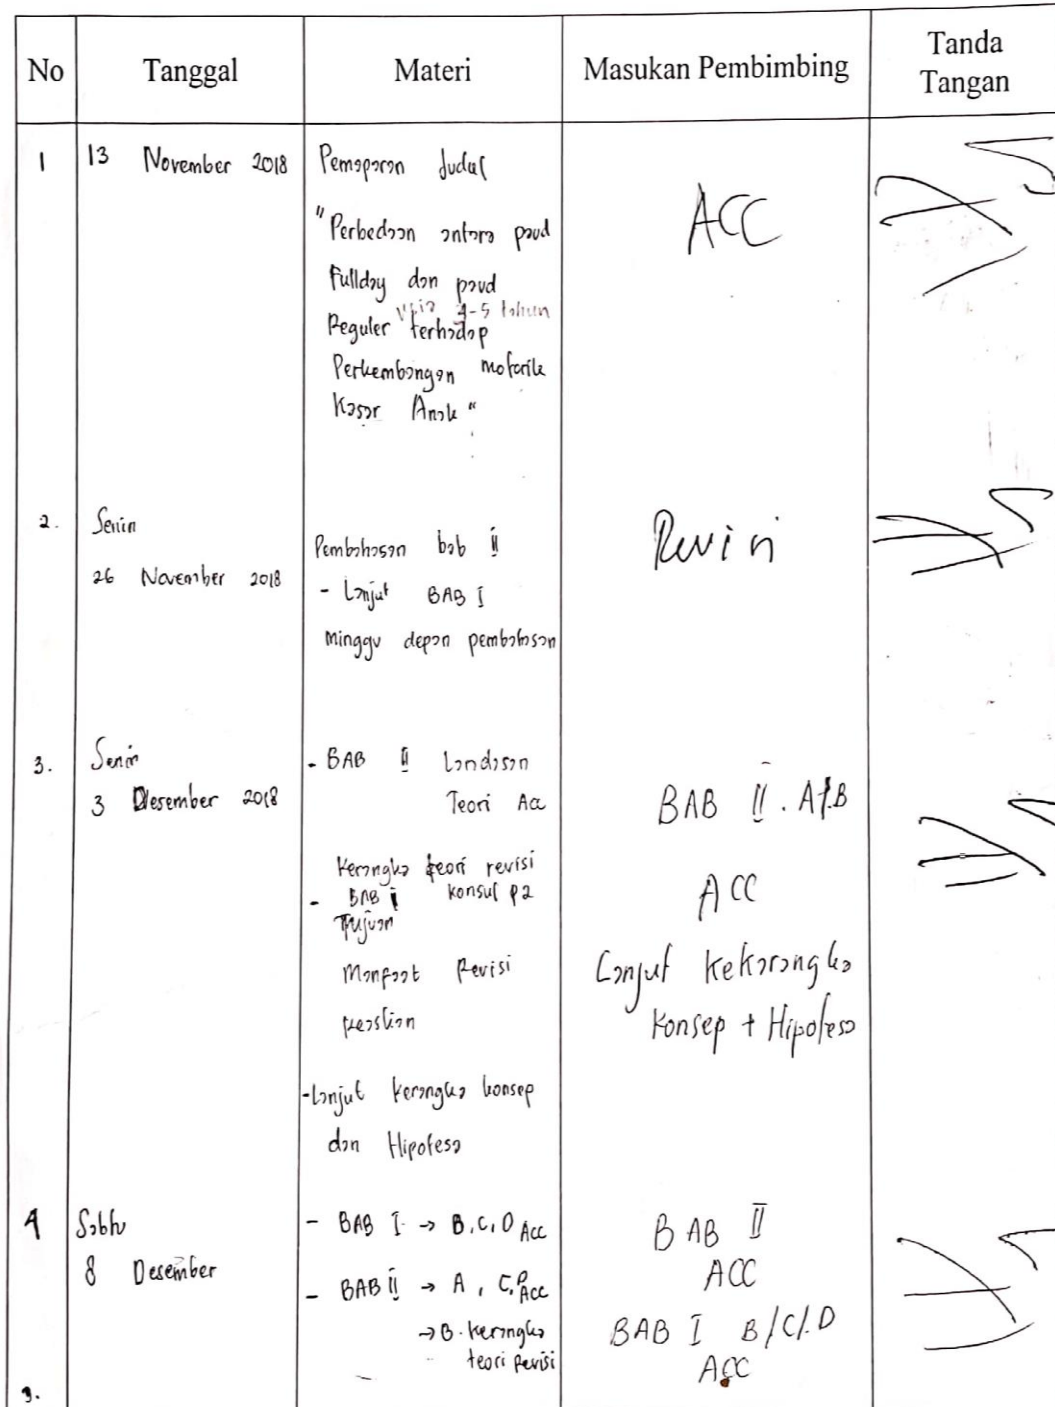 No Tanggal Materi Masukan Pembimbing Tanda Tangan
1 13 November 2018 Pemaparan Judul ACC
"Perbedaan antara paud
Fullday dan paud
usia 4-5 tahun
Reguler terhadap
Perkembangan motorik
Kasar Anak"
2. Senin
26 November 2018
Pembahasan bab II
- Lanjut BAB I
minggu depan pembahasan
Revisi
3. Senin
3 Desember 2018
- BAB II Landasan
Teori Acc
Kerangka teori revisi
- BAB I konsul P2
Tujuan
Manfaat Revisi
keaslian
- Lanjut kerangka konsep
dan Hipotesa
BAB II. A/.B
ACC
Lanjut Kekarangka
Konsep + Hipotesa
4 Sabtu
8 Desember
- BAB I → B, C, D Acc
- BAB II → A, C, D Acc
→ B. kerangka
teori Revisi
BAB II
ACC
BAB I B/C/.D
ACC